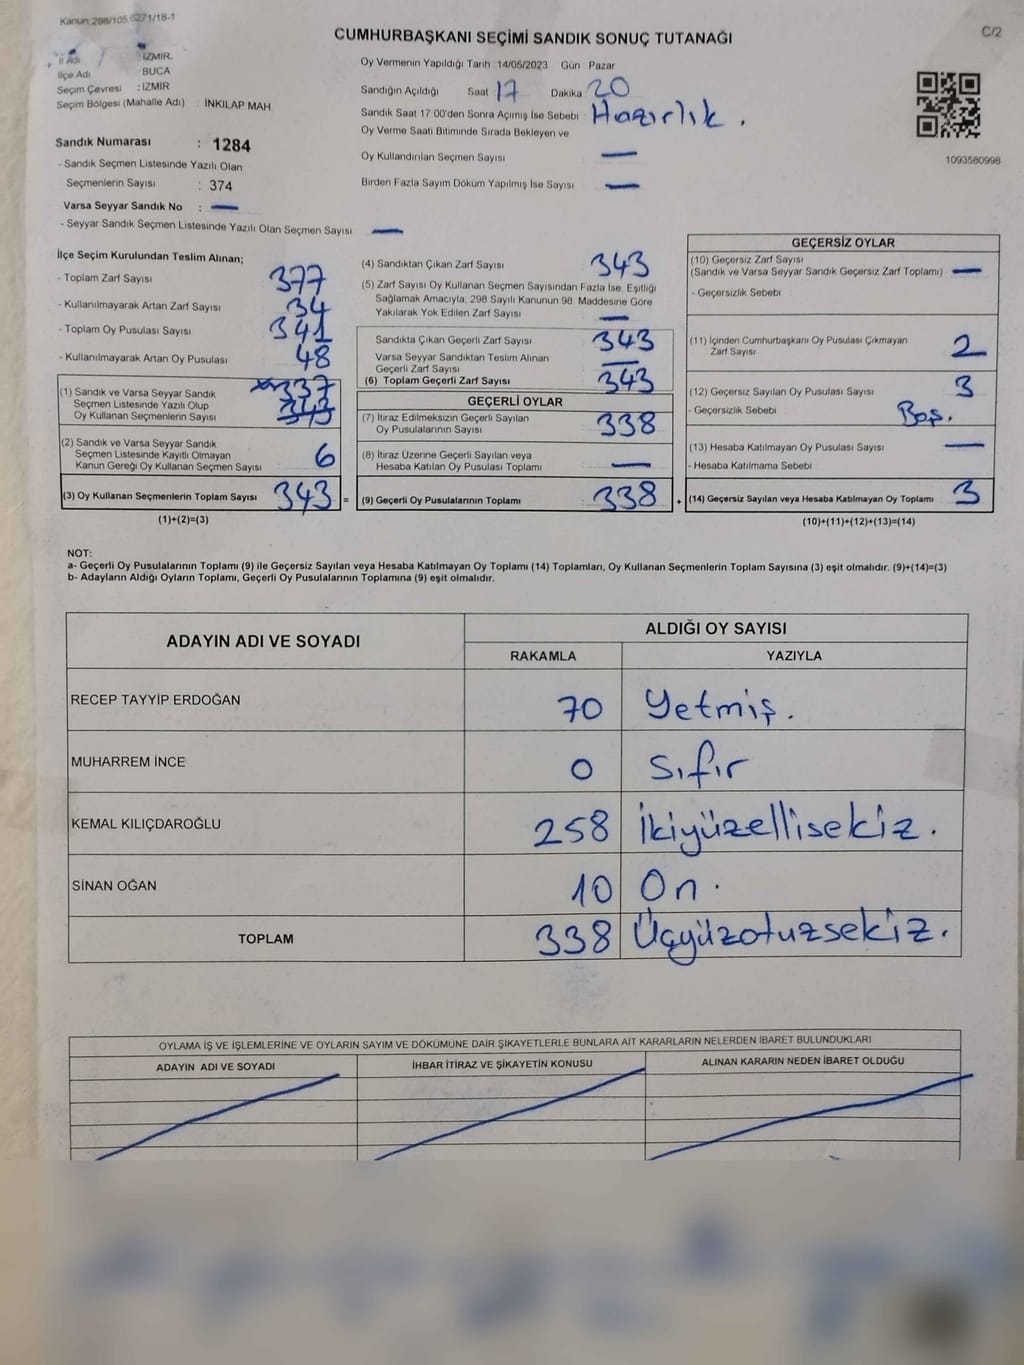 Kanun:298/105,6271/18-1
C/2
CUMHURBAŞKANI SEÇİMİ SANDIK SONUÇ TUTANAĞI
İl Adı : İZMİR
İlçe Adı : BUCA
Seçim Çevresi : İZMİR
Seçim Bölgesi (Mahalle Adı) : İNKILAP MAH
Sandık Numarası : 1284
- Sandık Seçmen Listesinde Yazılı Olan
Seçmenlerin Sayısı : 374
Varsa Seyyar Sandık No : —
- Seyyar Sandık Seçmen Listesinde Yazılı Olan Seçmen Sayısı —
Oy Vermenin Yapıldığı Tarih :14/05/2023 Gün : Pazar
Sandığın Açıldığı Saat 17 Dakika 20
Sandık Saat 17:00'den Sonra Açımış İse Sebebi Hazırlık.
Oy Verme Saati Bitiminde Sırada Bekleyen ve
Oy Kullandırılan Seçmen Sayısı —
Birden Fazla Sayım Döküm Yapılmış İse Sayısı —
1093580998
İlçe Seçim Kurulundan Teslim Alınan;
- Toplam Zarf Sayısı 377
- Kullanılmayarak Artan Zarf Sayısı 34
- Toplam Oy Pusulası Sayısı 341
- Kullanılmayarak Artan Oy Pusulası 48
(1) Sandık ve Varsa Seyyar Sandık 337
Seçmen Listesinde Yazılı Olup
Oy Kullanan Seçmenlerin Sayısı 343
(2) Sandık ve Varsa Seyyar Sandık
Seçmen Listesinde Kayıtlı Olmayan
Kanun Gereği Oy Kullanan Seçmen Sayısı 6
(3) Oy Kullanan Seçmenlerin Toplam Sayısı 343 =
(1)+(2)=(3)
(4) Sandıktan Çıkan Zarf Sayısı 343
(5) Zarf Sayısı Oy Kullanan Seçmen Sayısından Fazla İse, Eşitliği
Sağlamak Amacıyla, 298 Sayılı Kanunun 98. Maddesine Göre
Yakılarak Yok Edilen Zarf Sayısı —
Sandıkta Çıkan Geçerli Zarf Sayısı 343
Varsa Seyyar Sandıktan Teslim Alınan
Geçerli Zarf Sayısı —
(6) Toplam Geçerli Zarf Sayısı 343
GEÇERLİ OYLAR
(7) İtiraz Edilmeksizin Geçerli Sayılan
Oy Pusulalarının Sayısı 338
(8) İtiraz Üzerine Geçerli Sayılan veya
Hesaba Katılan Oy Pusulası Toplamı —
(9) Geçerli Oy Pusulalarının Toplamı 338 +
GEÇERSİZ OYLAR
(10) Geçersiz Zarf Sayısı
(Sandık ve Varsa Seyyar Sandık Geçersiz Zarf Toplamı) —
- Geçersizlik Sebebi
(11) İçinden Cumhurbaşkanı Oy Pusulası Çıkmayan
Zarf Sayısı 2
(12) Geçersiz Sayılan Oy Pusulası Sayısı 3
- Geçersizlik Sebebi Boş.
(13) Hesaba Katılmayan Oy Pusulası Sayısı —
- Hesaba Katılmama Sebebi
(14) Geçersiz Sayılan veya Hesaba Katılmayan Oy Toplamı 3
(10)+(11)+(12)+(13)=(14)
NOT:
a- Geçerli Oy Pusulalarının Toplamı (9) ile Geçersiz Sayılan veya Hesaba Katılmayan Oy Toplamı (14) Toplamları, Oy Kullanan Seçmenlerin Toplam Sayısına (3) eşit olmalıdır. (9)+(14)=(3)
b- Adayların Aldığı Oyların Toplamı, Geçerli Oy Pusulalarının Toplamına (9) eşit olmalıdır.
ADAYIN ADI VE SOYADI
ALDIĞI OY SAYISI
RAKAMLA YAZIYLA
RECEP TAYYİP ERDOĞAN 70 Yetmiş.
MUHARREM İNCE 0 Sıfır
KEMAL KILIÇDAROĞLU 258 İkiyüzellisekiz.
SİNAN OĞAN 10 On.
TOPLAM 338 Üçyüzotuzsekiz.
OYLAMA İŞ VE İŞLEMLERİNE VE OYLARIN SAYIM VE DÖKÜMÜNE DAİR ŞİKAYETLERLE BUNLARA AİT KARARLARIN NELERDEN İBARET BULUNDUKLARI
ADAYIN ADI VE SOYADI İHBAR İTİRAZ VE ŞİKAYETİN KONUSU ALINAN KARARIN NEDEN İBARET OLDUĞU